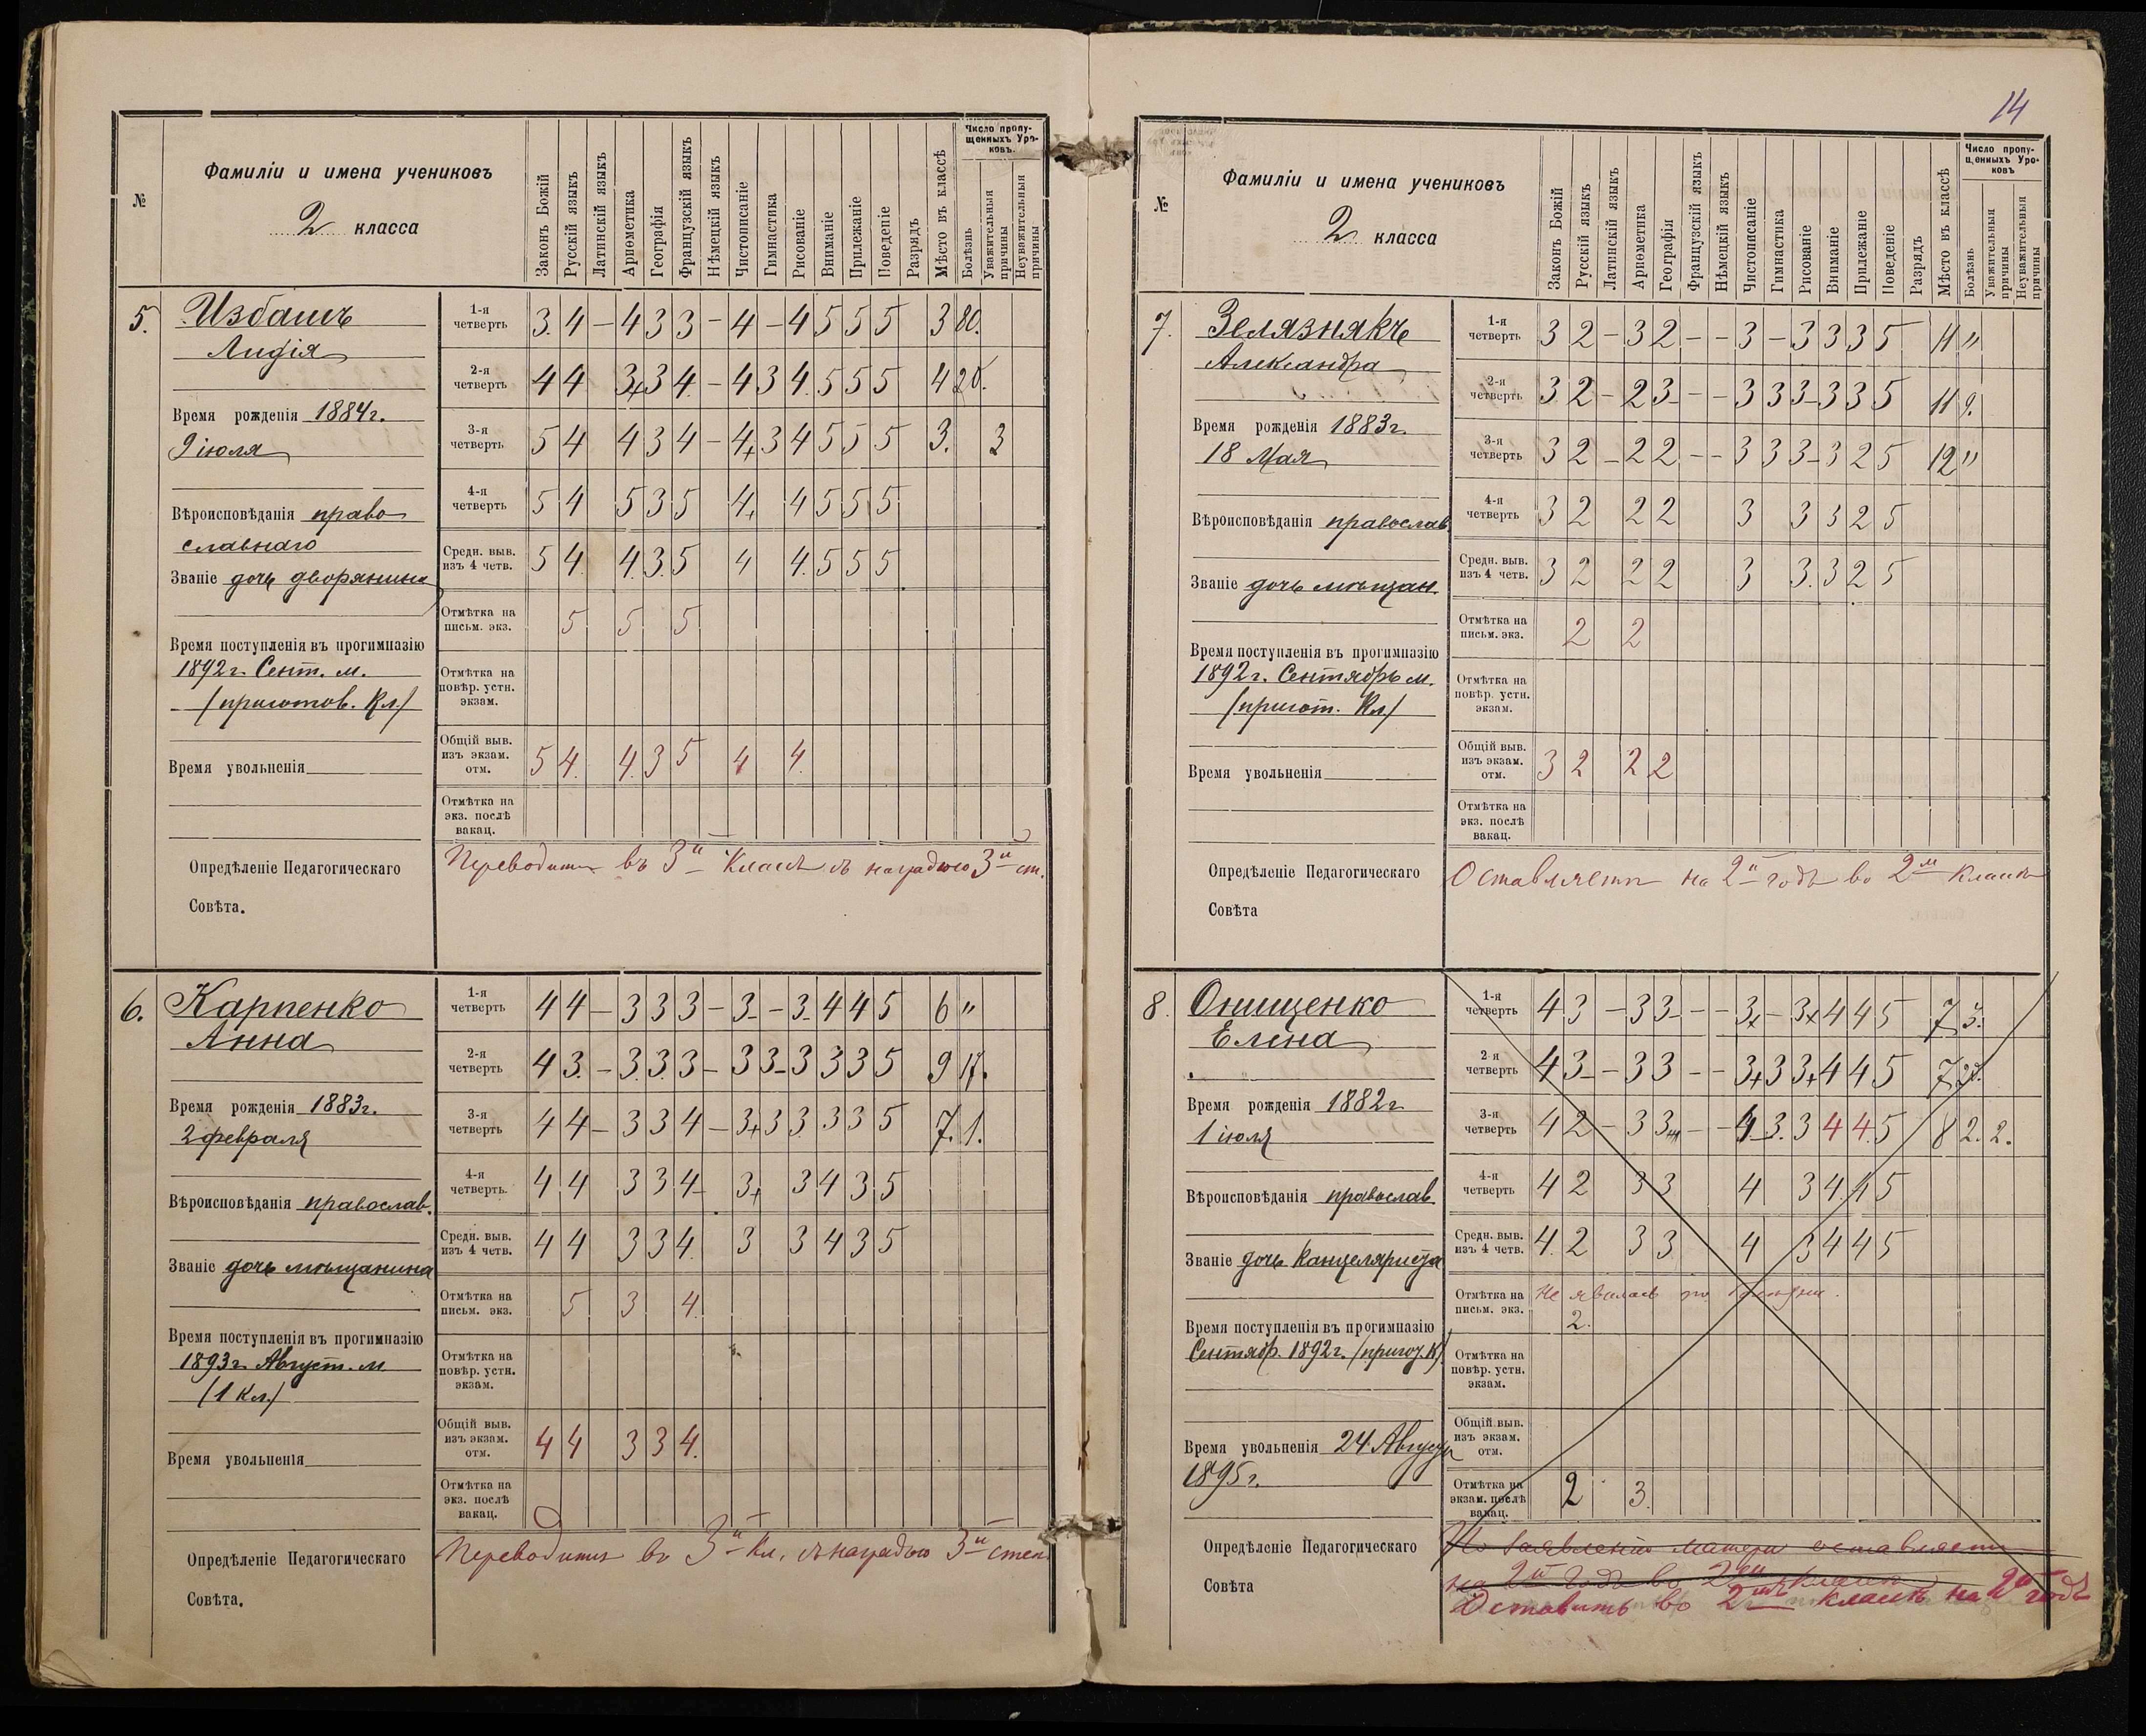 14
№
Фамиліи и имена учениковъ
2 класса
Законъ Божій
Русскій языкъ
Латинскій языкъ
Ариѳметика
Географія
Французскій языкъ
Нѣмецкій языкъ
Чистописаніе
Гимнастика
Рисованіе
Вниманіе
Прилежаніе
Поведеніе
Разрядъ
Мѣсто въ классѣ
Число пропу-
щенныхъ Уро-
ковъ.
Болѣзнь
Уважительныя причины
Неуважительныя причины
5.
Избашъ
Лидія
Время рожденія 1884г.
9 іюля
Вѣроисповѣданія право
славнаго
Званіе дочь дворянина
Время поступленія въ прогимназію
1892г. Сент. м.
/приготов. Кл/
Время увольненія
1-я четверть 3 4 – 4 3 3 – 4 – 4 5 5 5 3 80.
2-я четверть 4 4 3+ 3 4 – 4 3 4 5 5 5 4 20.
3-я четверть 5 4 4 3 4 – 4+ 3 4 5 5 5 3. 3
4-я четверть 5 4 5 3 5 4+ 4 5 5 5
Средн. выв. изъ 4 четв. 5 4 4 3 5 4 4 5 5 5
Отмѣтка на письм. экз. 5 5 5
Отмѣтка на повѣр. устн. экзам.
Общій выв. изъ экзам. отм. 5 4 4 3 5 4 4
Отмѣтка на экз. послѣ вакац.
Опредѣленіе Педагогическаго
Совѣта.
Переводится въ 3й классъ съ наградою 3й ст.
6.
Карпенко
Анна
Время рожденія 1883г.
2 февраля
Вѣроисповѣданія православ.
Званіе дочь мѣщанина
Время поступленія въ прогимназію
1893г. Август. м
/1 Кл./
Время увольненія
1-я четверть 4 4 – 3 3 3 – 3 – – 3 4 4 5 6 „
2-я четверть 4 3 – 3 3 3 – 3 3 – 3 3 3 5 9 17.
3-я четверть 4 4 – 3 3 4 – 3+ 3 3 3 3 5 7. 1.
4-я четверть. 4 4 3 3 4 3+ 3 4 3 5
Средн. выв. изъ 4 четв. 4 4 3 3 4 3 3 4 3 5
Отмѣтка на письм. экз. 5 3 4
Отмѣтка на повѣр. устн. экзам.
Общій выв. изъ экзам. отм. 4 4 3 3 4.
Отмѣтка на экз. послѣ вакац.
Опредѣленіе Педагогическаго
Совѣта.
Переводится въ 3й Кл. съ наградою 3й степ.
№
Фамиліи и имена учениковъ
2 класса
Законъ Божій
Русскій языкъ
Латинскій языкъ
Ариѳметика
Географія
Французскій языкъ
Нѣмецкій языкъ
Чистописаніе
Гимнастика
Рисованіе
Вниманіе
Прилежаніе
Поведеніе
Разрядъ
Мѣсто въ классѣ
Число пропу-
щенныхъ Уро-
ковъ
Болѣзнь
Уважительныя причины
Неуважительныя причины
7.
Зелязнякъ
Александра
Время рожденія 1883г.
18 Мая
Вѣроисповѣданія православ
Званіе дочь мѣщан.
Время поступленія въ прогимназію
1892г. Сентябрь м.
/пригот. Кл/
Время увольненія
1-я четверть 3 2 – 3 2 – – 3 – 3 3 3 5 11 „
2-я четверть 3 2 – 2 3 – – 3 3 3 3 3 5 11 9.
3-я четверть 3 2 – 2 2 – – 3 3 3 3 2 5 12 „
4-я четверть 3 2 2 2 3 3 3 2 5
Средн. выв. изъ 4 четв. 3 2 2 2 3 3 3 2 5
Отмѣтка на письм. экз. 2 2
Отмѣтка на повѣр. устн. экзам.
Общій выв. изъ экзам. отм. 3 2 2 2
Отмѣтка на экз. послѣ вакац.
Опредѣленіе Педагогическаго
Совѣта
Оставляется на 2й годъ во 2м классѣ
8.
Онищенко
Елена
Время рожденія 1882г
1 іюля
Вѣроисповѣданія православ.
Званіе дочь Канцеляриста
Время поступленія въ прогимназію
Сентябр. 1892г. /пригот. К/
Время увольненія 24 Августа
1895г.
1-я четверть 4 3 – 3 3 – – 3+ – 3+ 4 4 5 7 3.
2 я четверть 4 3 – 3 3 – – 3+ 3 3+ 4 4 5 7
3-я четверть 4 2 – 3 3 – – 4 3 3 4 4 5 8 2. 2.
4-я четверть 4 2 3 3 4 3 4 4 5
Средн. выв. изъ 4 четв. 4 2 3 3 4 3 4 4 5
Отмѣтка на письм. экз. Не явилась по болѣзни.
2.
Отмѣтка на повѣр. устн. экзам.
Общій выв. изъ экзам. отм.
Отмѣтка на экзам. послѣ вакац. 2 3.
Опредѣленіе Педагогическаго
Совѣта
По заявленію матери оставляется
на 2й годъ во 2м классѣ
Оставить во 2мъ классѣ на 2й годъ